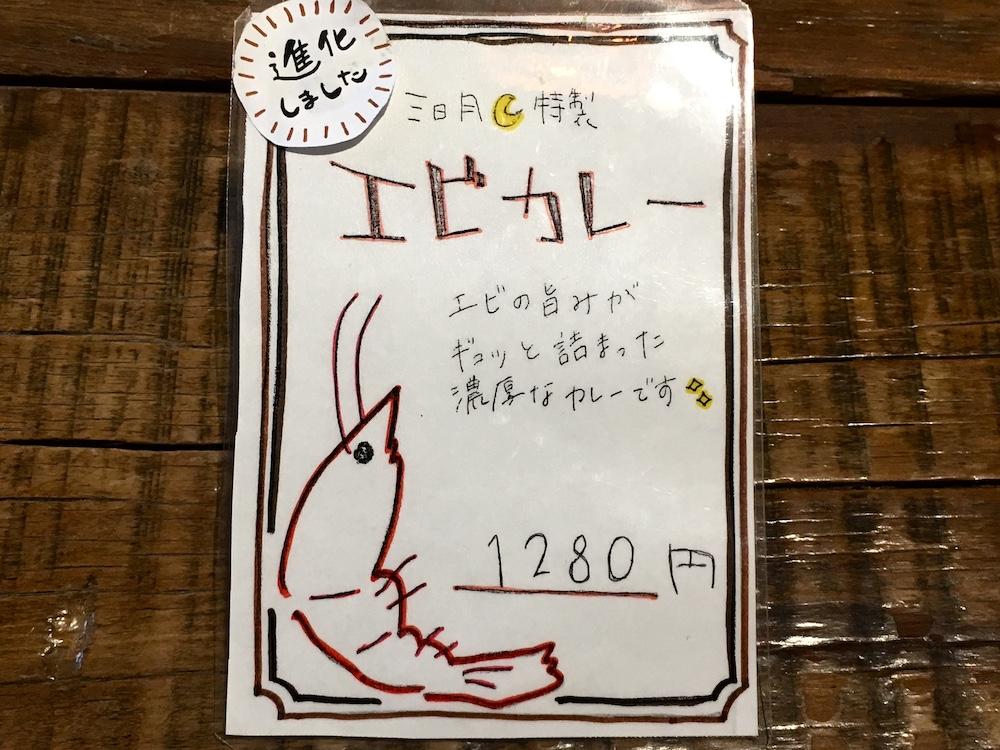 進化
しました
三日月特製
エビカレー
エビの旨みが
ギュッと詰まった
濃厚なカレーです
1280円